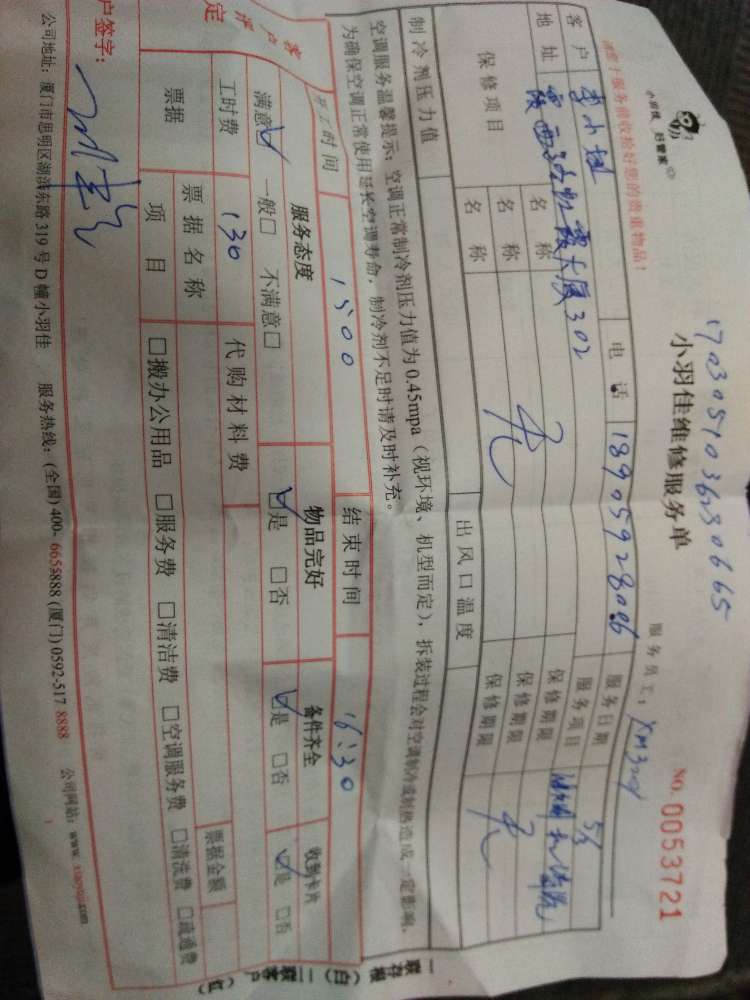 1703051036230665
小羽佳 好管家
小羽佳维修服务单
NO. 0053721
服务员工：
注意！服务前收拾好您的贵重物品！
客户 李小姐 电话 18905928086 服务日期 5/3
地址 大厦302 服务项目
保修项目 名称 保修期限
名称 无 保修期限 无
名称 保修期限
制冷剂压力值 出风口温度
空调服务温馨提示：空调正常制冷剂压力值为0.45mpa（视环境、机型而定），拆装过程会对空调制冷或制热造成一定影响，
为确保空调正常使用延长空调寿命，制冷剂不足时请及时补充。
开工时间 1500 结束时间 16:30
服务态度 物品完好 备件齐全 收到卡片
满意☑ 一般□ 不满意□ ☑是 □否 ☑是 □否 ☑是 □否
工时费 130 代购材料费
票据 票据名称 票据金额
项目 □搬办公用品 □服务费 □清洁费 □空调服务费 □清洗费 □疏通费
户签字：
公司地址：厦门市思明区湖滨东路319号D幢小羽佳 服务热线：(全国)400-6655888 (厦门)0592-5178888 公司网站：www.xiaoyujia.com